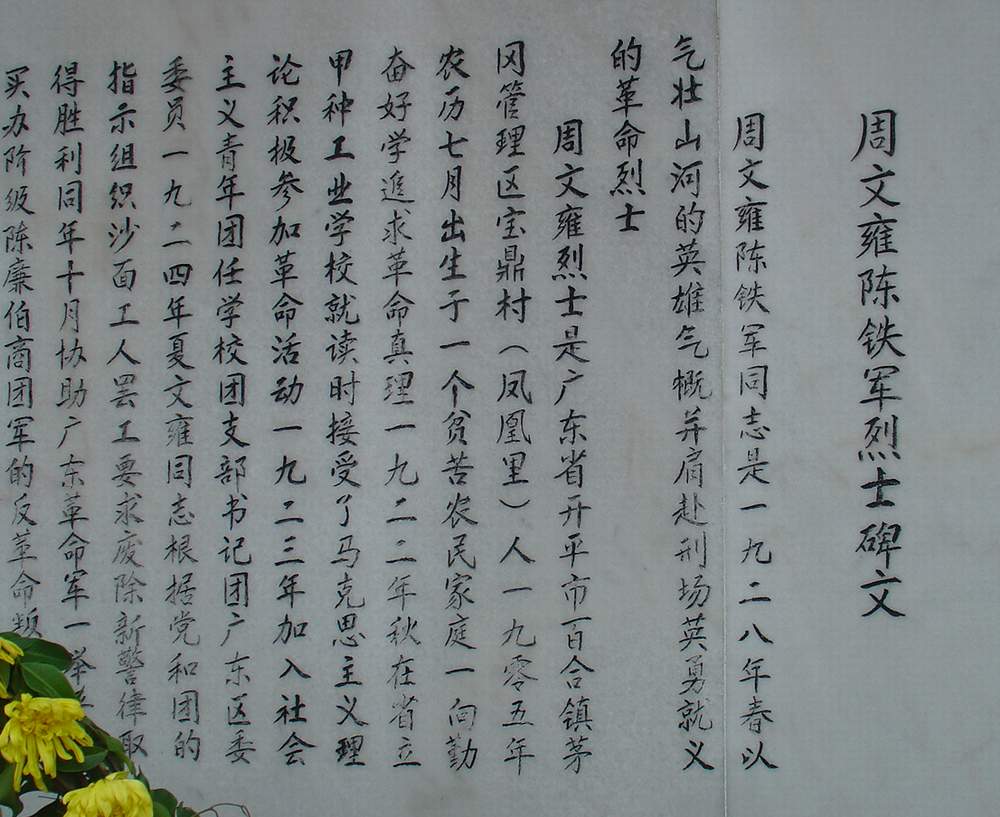 周文雍陈铁军烈士碑文
周文雍陈铁军同志是一九二八年春以
气壮山河的英雄气概并肩赴刑场英勇就义
的革命烈士
周文雍烈士是广东省开平市百合镇茅
冈管理区宝鼎村（凤凰里）人一九零五年
农历七月出生于一个贫苦农民家庭一向勤
奋好学追求革命真理一九二二年秋在省立
甲种工业学校就读时接受了马克思主义理
论积极参加革命活动一九二三年加入社会
主义青年团任学校团支部书记团广东区委
委员一九二四年夏文雍同志根据党和团的
指示组织沙面工人罢工要求废除新警律取
得胜利同年十月协助广东革命军一举
买办阶级陈廉伯商团军的反革命叛